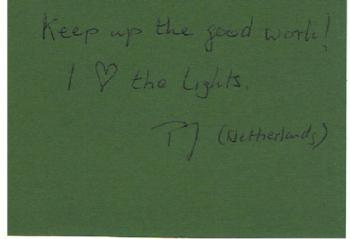 Keep up the good work!
I ♡ the lights.
PJ (Netherlands)